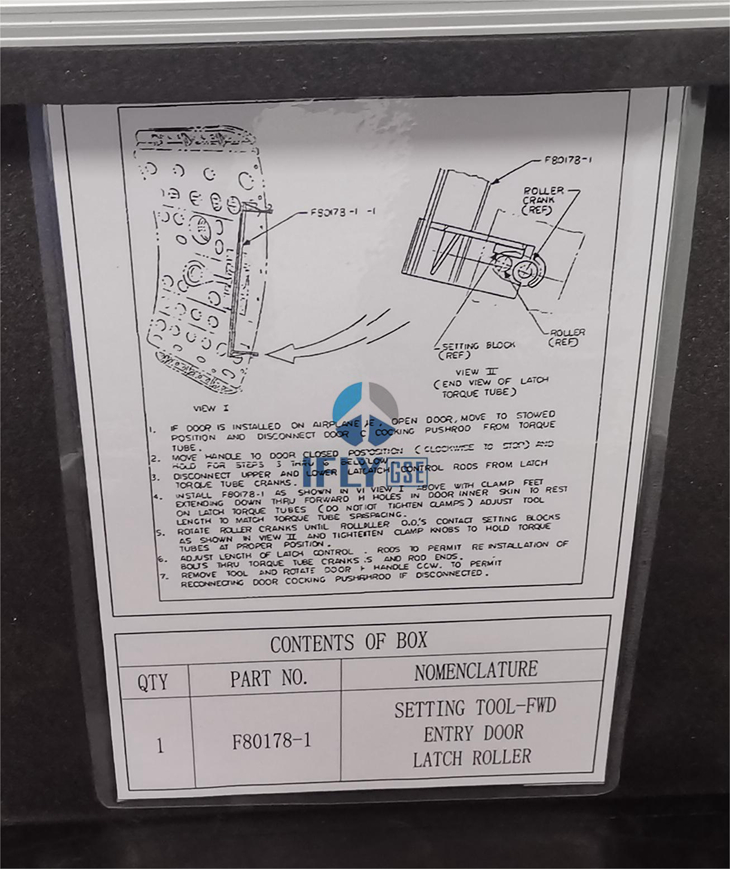 F80178-1
ROLLER
CRANK
(REF)
F80178-1 -1
ROLLER
(REF)
SETTING BLOCK
(REF)
VIEW II
(END VIEW OF LATCH
TORQUE TUBE)
VIEW I
IFLY GSE
1. IF DOOR IS INSTALLED ON AIRPLANE, OPEN DOOR, MOVE TO STOWED
POSITION AND DISCONNECT DOOR C COCKING PUSHROD FROM TORQUE
TUBE.
2. MOVE HANDLE TO DOOR CLOSED POSPOSITION (CLOCKWISE TO STOP) AND
HOLD FOR STEPS 3 THRU 6 BELOW
3. DISCONNECT UPPER AND LOWER LATLATCH CONTROL RODS FROM LATCH
TORQUE TUBE CRANKS.
4. INSTALL F80178-1 AS SHOWN IN VI VIEW I ABOVE WITH CLAMP FEET
EXTENDING DOWN THRU FORWARD H HOLES IN DOOR INNER SKIN TO REST
ON LATCH TORQUE TUBES (DO NOTIOT TIGHTEN CLAMPS) ADJUST TOOL
LENGTH TO MATCH TORQUE TUBE SPASPACING.
5. ROTATE ROLLER CRANKS UNTIL ROLLKLLER O.D.'S CONTACT SETTING BLOCKS
AS SHOWN IN VIEW II AND TIGHTEITEN CLAMP KNOBS TO HOLD TORQUE
TUBES AT PROPER POSITION.
6. ADJUST LENGTH OF LATCH CONTROL . RODS TO PERMIT RE INSTALLATION OF
BOLTS THRU TORQUE TUBE CRANKS IS AND ROD ENDS.
7. REMOVE TOOL AND ROTATE DOOR H HANDLE CCW. TO PERMIT
RECONNECTING DOOR COCKING PUSHRHROD IF DISCONNECTED.
CONTENTS OF BOX
QTY PART NO. NOMENCLATURE
1 F80178-1 SETTING TOOL-FWD
ENTRY DOOR
LATCH ROLLER